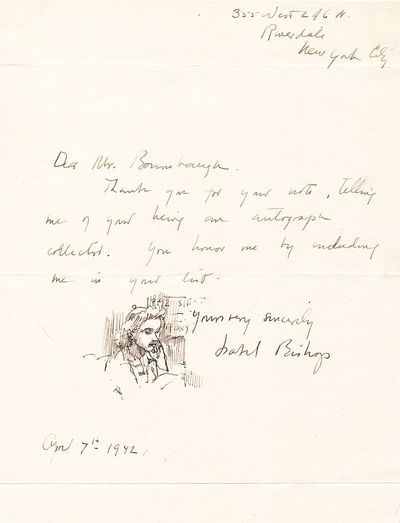 355 West 246 St.
Riverdale
New York City
Dear Mr. Baumbaugh.
Thank you for your note, telling
me of your being an autograph
collector. You honor me by including
me in your list.
Yours very sincerely
Isabel Bishop
April 7th 1942